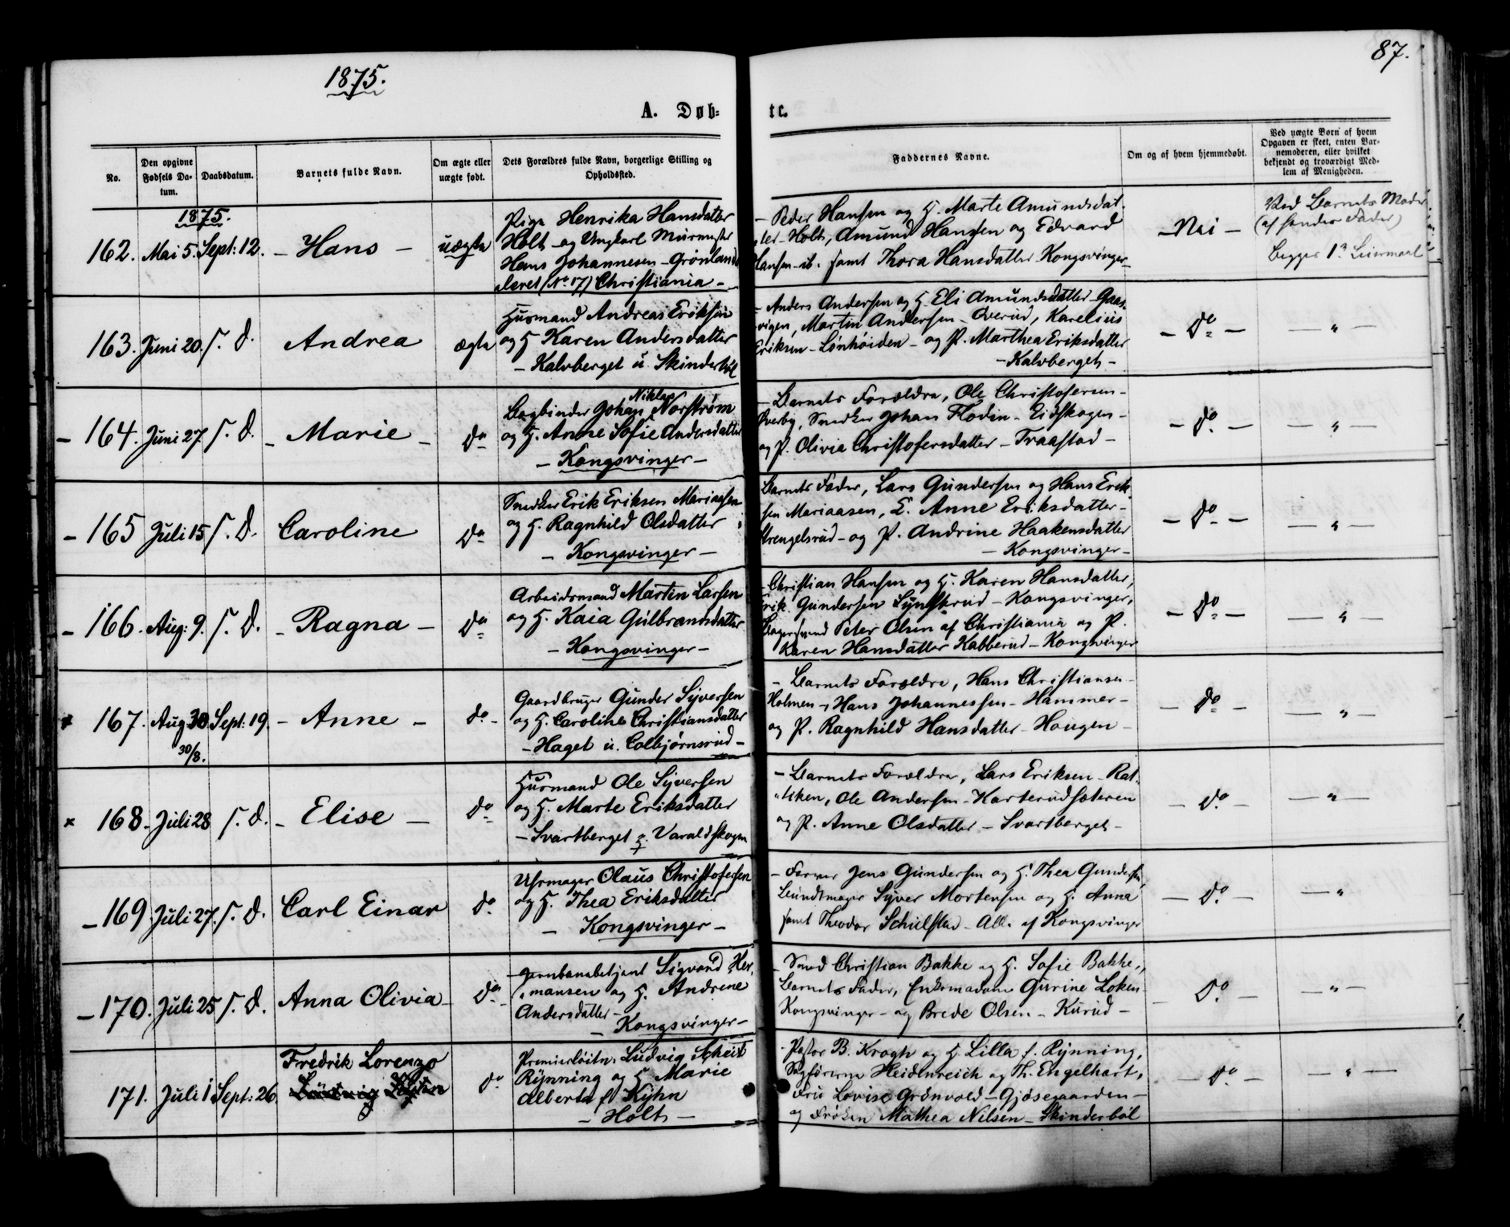 87.
1875.
A. Døb-
te.
No.
Den opgivne Fødsels Datum.
Daabsdatum.
Barnets fulde Navn.
Om ægte eller uægte født.
Dets Forældres fulde Navn, borgerlige Stilling og Opholdssted.
Faddernes Navne.
Om og af hvem hjemmedøbt.
Ved uægte Børn af hvem Opgaven er skeet, enten Barnemoderen, eller hvilket bekjendt og troværdigt Medlem af Menigheden.
1875.
162. Mai 5. Sept: 12. - Hans - uægte
Pige Henrika Hansdatter
Holt - og Ungkarl Murmester
Hans Johannesen - Grønlands
leret (No 17) Christiania -
- Peder Hansen og H. Marte Amundsdat-
ter - Holt, Amund Hansen og Edvard
Hansen - ib. samt Thora Hansdatter Kongsvinger -
- Nei -
Ved Barnets Moder
(af hendes Fader)
begges 1ste Leiermaal
163. Juni 20. s. d. Andrea ægte
Husmand Andreas Eriksen
og H. Karen Andersdatter
- Kalvberget u. Skinderbøl
- Anders Andersen og H. Eli Amundsdatter Gaas-
vigen, Martin Andersen - Overud, Karelius
Eriksen - Lønhøiden - og P. Marthea Eriksdatter
- Kalvberget -
- Do -
- " -
- 164. Juni 27 s. d. - Marie - Do
Bogbinder Johan Niklas Norstrøm
og H. Anne Sofie Andersdatter
- Kongsvinger -
- Barnets Forældre, Ole Christofersen -
Overby, Snedker Johan Floden - Eidskogen -
og P. Olivia Christofersdatter - Traastad -
- Do. -
- " -
- 165 Juli 15 s. d. Caroline Do
Snedker Erik Eriksen Mariaasen
og H. Ragnhild Olsdatter
- Kongsvinger -
Barnets Fader, Lars Gundersen og Hans Erik-
sen Mariaasen, E. Anne Eriksdatter -
Strengelsrud - og P. Andrine Haakensdatter
- Kongsvinger -
- Do - -
- " -
- 166. Aug: 9. s. d. - Ragna - Do
Arbeidsmand Martin Larsen
og H. Kaia Gulbrandsdatter
- Kongsvinger -
- Christian Hansen og H. Karen Hansdatter,
Erik Gundersen - Kongsvinger,
Peter Olsen af Christiania og P.
Karen Hansdatter Kabberud - Kongsvinger
- Do -
- " -
x 167. Aug 30 Sept: 19. - Anne - do -
30/8.
Gaardbruger Gunder Syversen
og H. Caroline Christiansdatter
- Haget u. Colbjørnsrud -
- Barnets Forældre, Hans Christiansen -
Holmen - Hans Johannessen - Hammer -
og P. Ragnhild Hansdatter - Haugen -
- Do -
- " -
x 168. Juli 28 s. d. - Elise - do
Husmand Ole Syversen
og H. Marte Eriksdatter
- Svartberget p. Varaldskogen
- Barnets Forældre, Lars Eriksen - Rat-
tiken, Ole Andersen - Harterudsæteren
og P. Anne Olsdatter - Svartberget -
- Do -
- " -
- 169 Juli 27. s. d. Carl Einar do
Uhrmager Olaus Christofersen
og H. Thea Eriksdatter
- Kongsvinger -
- Farver Jens Gundersen og H. Thea Gundersen
Bundtmager Syver Mortensen og H. Anna
samt Theodor Schulstad - Alle af Kongsvinger
- Do -
- " -
- 170. Juli 25 s. d. Anna Olivia - do
Jernbanebetjent Sigvard Her-
mansen og H. Andrene
Andersdatter -
- Kongsvinger -
- Smed Christian Bakke og H. Sofie Bakke,
Barnets Fader, Enkemadam Gurine Loken
Kongsvinger - og Brede Olsen - Kurud -
- Do. -
- " -
171. Juli 1 Sept: 26. Fredrik Lorenzo do
Premierløitn: Ludvig Scheit
Rynning og H. Marie
Alberta f. Kyhn
- Holt -
- Pastor B. Krogh og H. Lilla f. Rynning,
Sagfører Heidenreich og Th. Engelhart,
Fru Lovise Grønvold - Gjøsegaarden -
og Frøken Mathea Nilsen - Skinderbøl
- Do. -
- " -